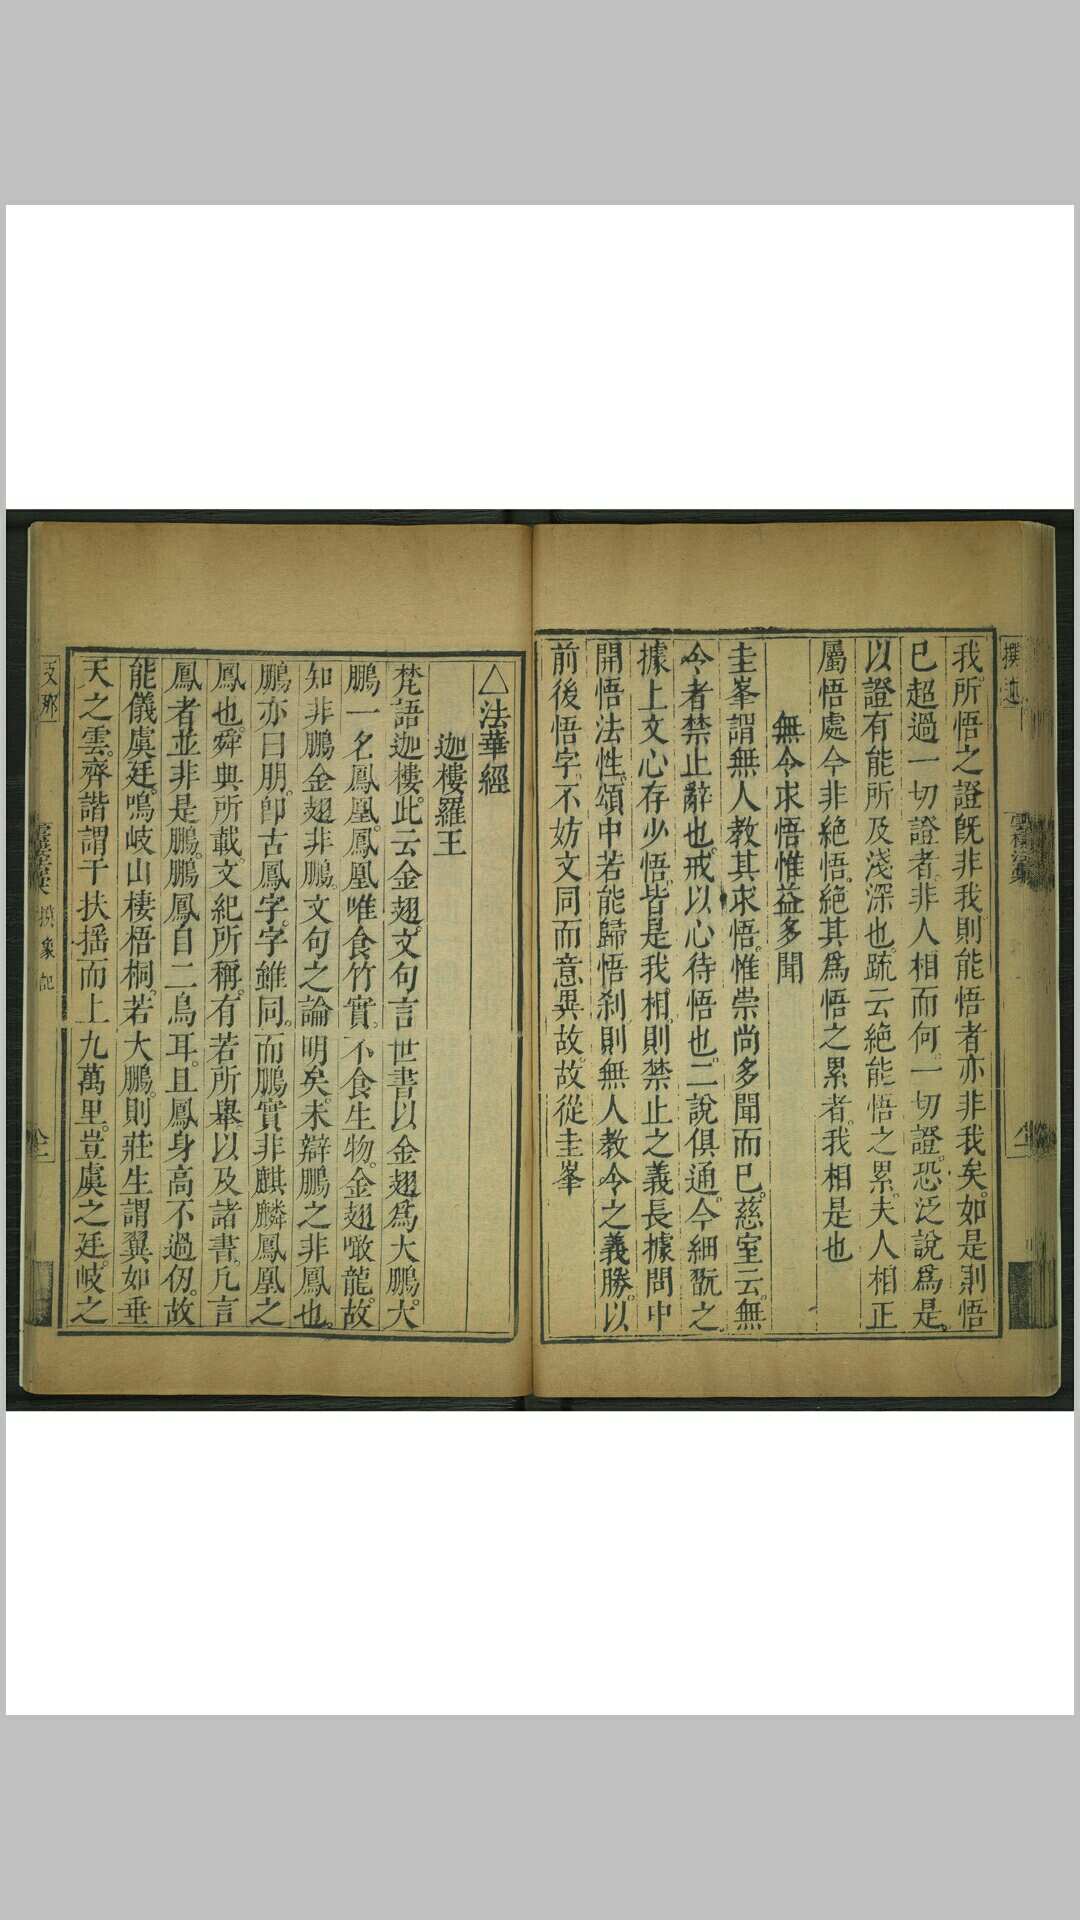 我所悟之證旣非我則能悟者亦非我矣如是則悟
已超過一切證者非人相而何一切證恐泛說爲是
以證有能所及淺深也疏云絶能悟之累夫人相正
屬悟處今非絶悟絶其爲悟之累者我相是也
無令求悟惟益多聞
圭峯謂無人教其求悟惟崇尚多聞而已慈室云無
令者禁止辭也戒以心待悟也二說俱通今細翫之
據上文心存少悟皆是我相則禁止之義長據問中
開悟法性頌中若能歸悟刹則無人教令之義勝以
前後悟字不妨文同而意異故故從圭峯
△法華經
迦樓羅王
梵語迦樓此云金翅文句言世書以金翅爲大鵬大
鵬一名鳳凰鳳凰唯食竹實不食生物金翅噉龍故
知非鵬金翅非鵬文句之論明矣未辯鵬之非鳳也
鵬亦曰朋卽古鳳字字雖同而鵬實非麒麟鳳凰之
鳳也舜典所載文紀所稱有若所舉以及諸書凡言
鳳者並非是鵬鵬鳳自二鳥耳且鳳身高不過仞故
能儀虞廷鳴岐山棲梧桐若大鵬則莊生謂翼如垂
天之雲齊諧謂干扶搖而上九萬里豈虞之廷岐之